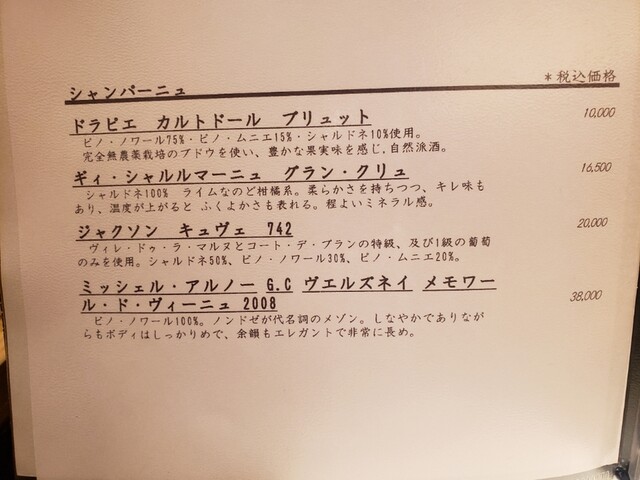 シャンパーニュ
＊税込価格
ドラピエ　カルトドール　ブリュット 10,000
ピノ・ノワール75%・ピノ・ムニエ15%・シャルドネ10%使用。
完全無農薬栽培のブドウを使い、豊かな果実味を感じ,自然派酒。
ギィ・シャルルマーニュ　グラン・クリュ 16,500
シャルドネ100%　ライムなのど柑橘系。柔らかさを持ちつつ、キレ味も
あり、温度が上がると ふくよかさも表れる。程よいミネラル感。
ジャクソン　キュヴェ　742 20,000
ヴィレ・ドゥ・ラ・マルヌとコート・デ・ブランの特級、及び1級の葡萄
のみを使用。シャルドネ50%、ピノ・ノワール30%、ピノ・ムニエ20%。
ミッシェル・アルノー G.C ヴエルズネイ メモワー
ル・ド・ヴィーニュ 2008 38,000
ピノ・ノワール100%。ノンドゼが代名詞のメゾン。しなやかでありなが
らもボディはしっかりめで、余韻もエレガントで非常に長め。